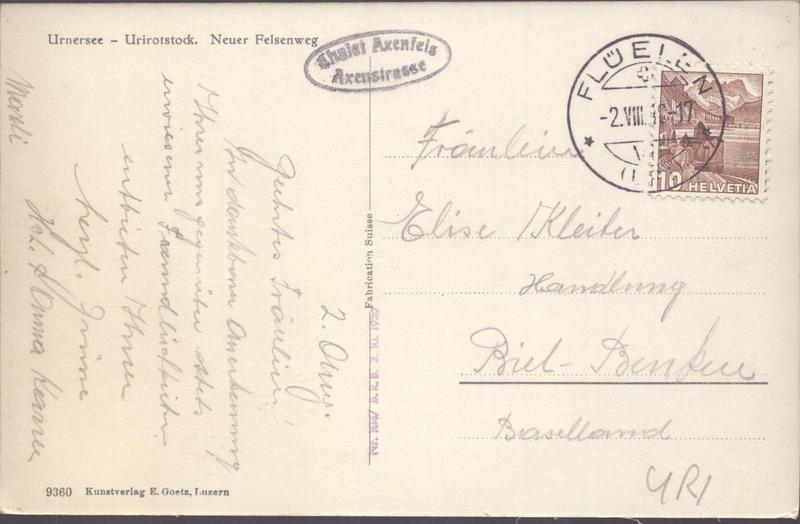 Urnersee – Urirotstock. Neuer Felsenweg
Chalet Axenfels
Axenstrasse
FLÜELEN
-2.VIII. -17
10 HELVETIA
Fräulein
Elise Kleiber
Handlung
Biel-Benken
Baselland
URI
Fabrication Suisse
Nr. 1047 B.R.B. 3.10.1939
2. Aug.
Geehrtes Fräulein!
In dankbarer Anerkennung
Ihrer uns gegenüber stets
erwiesenen Freundlichkeiten
entbieten Ihnen
herzl. Grüsse
Merkli
9360 Kunstverlag E. Goetz, Luzern